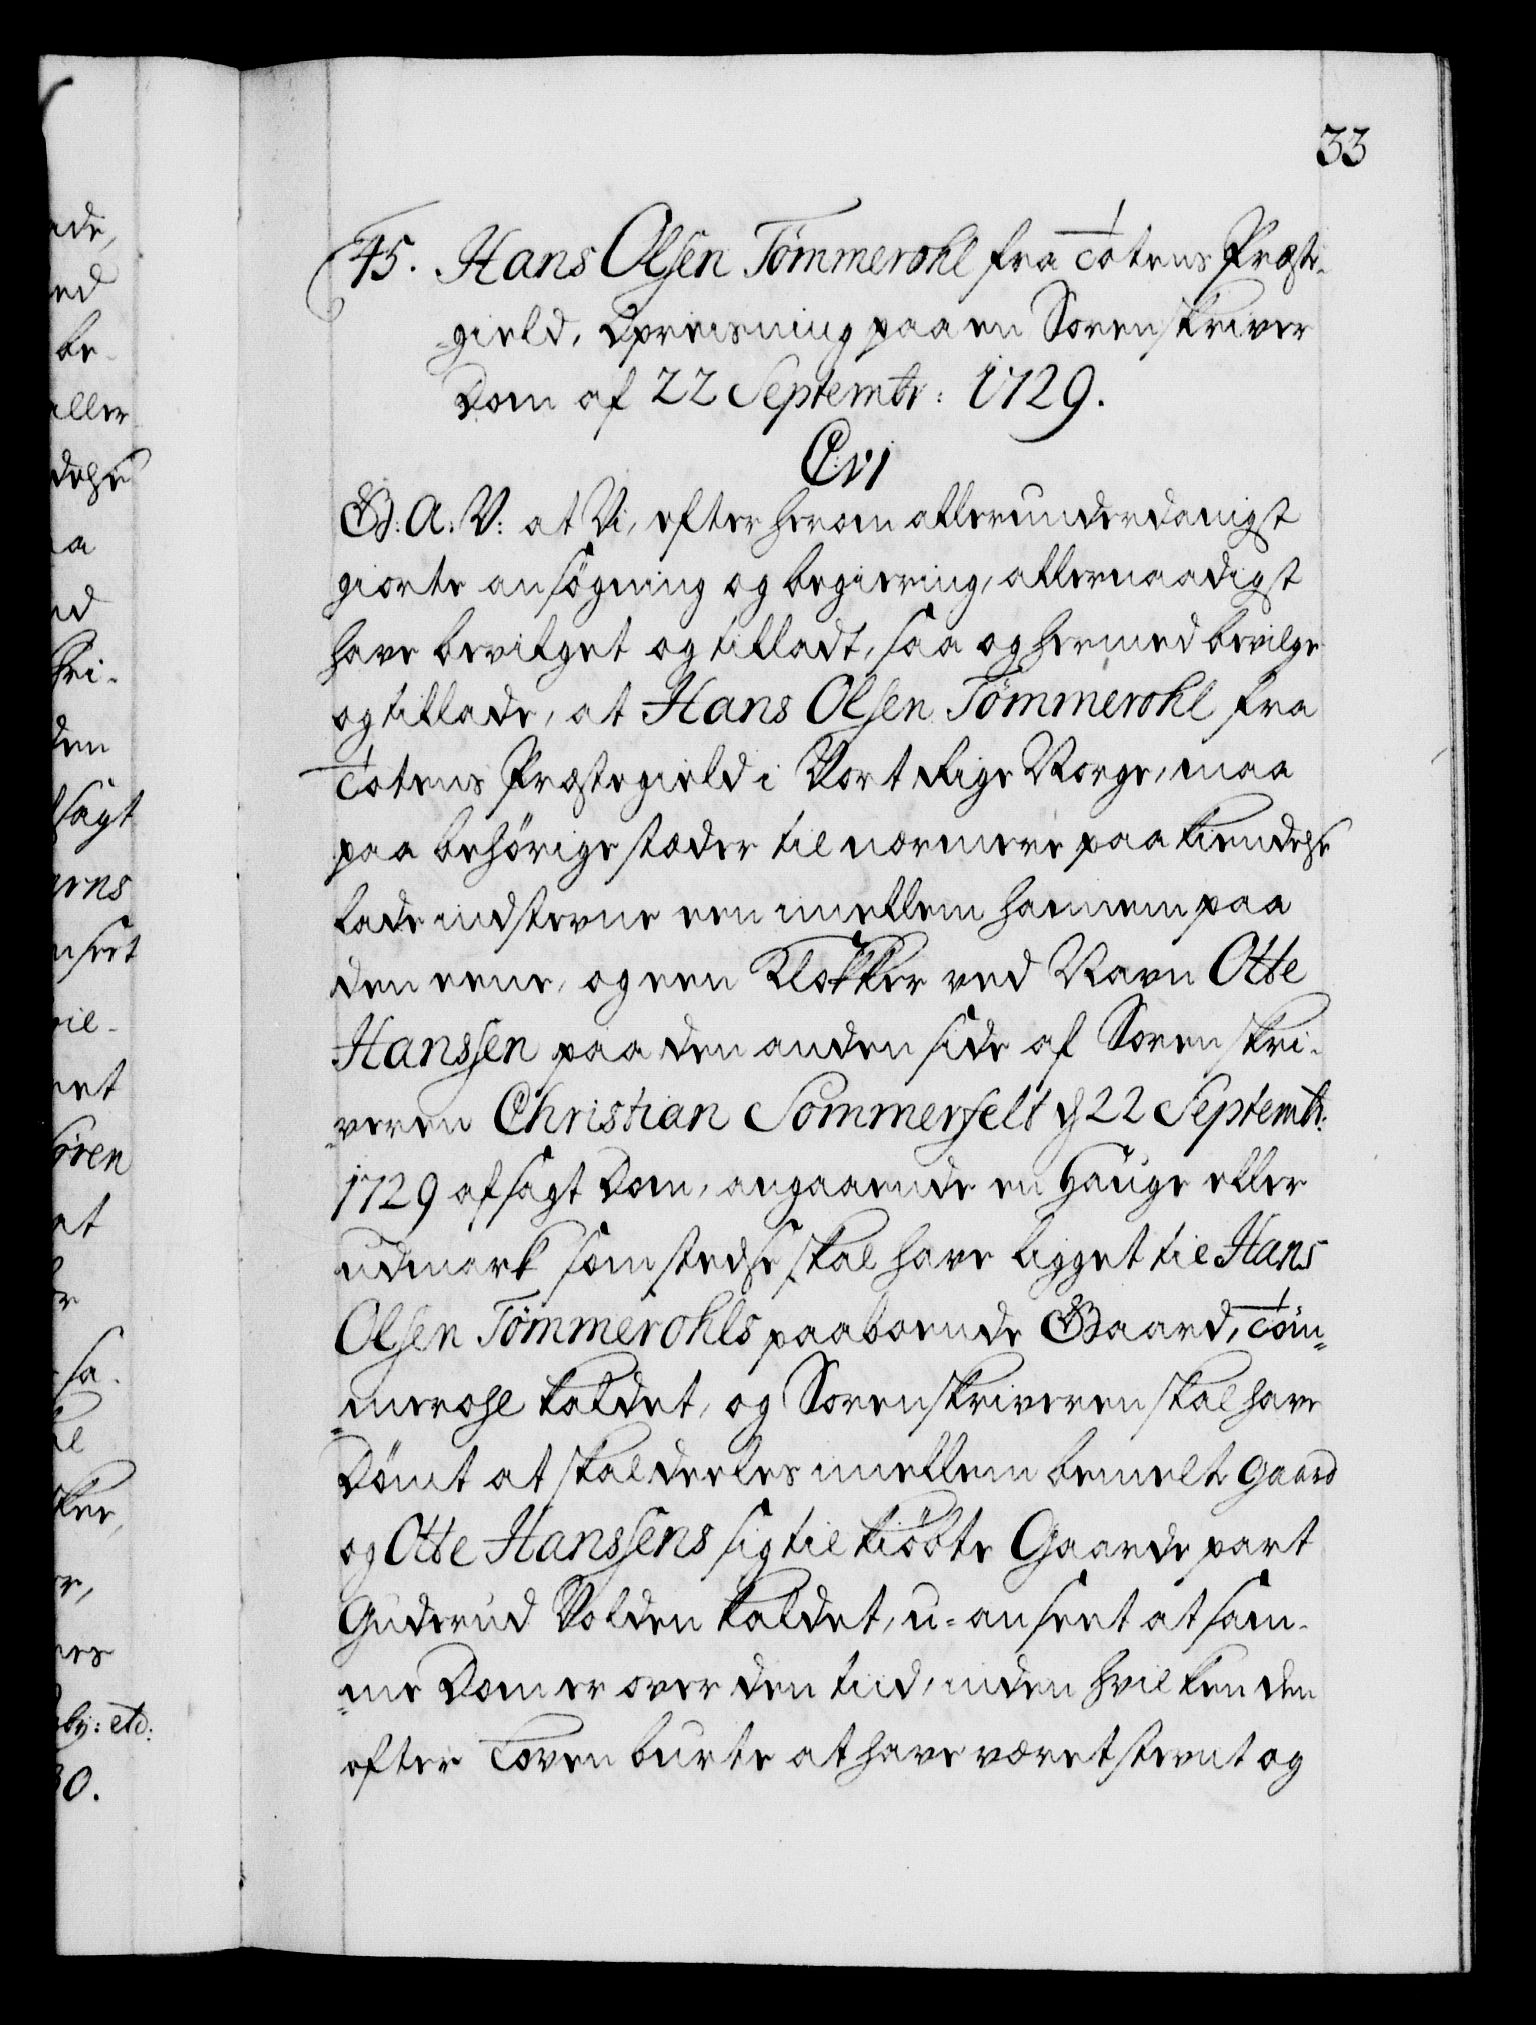 33
45. Hans Olsen Tömmerohl fra Totens Præste-
gield, Opreisning paa en Sorenskriver
Dom af 22 Septembr: 1729.
C. vi
G. A. V: at Vi, efter herom allerunderdanigst
giorte ansögning og begiering, allernaadigst
have bevilget og tilladt, saa og hermed bevilge
og tillade, at Hans Olsen Tömmerohl fra
Totens Præstegield i Vort Rige Norge, maa
paa behörige stæder til nærmere paakiendelse
lade indstevne een imellem hannem paa
den eene, og een Klokker ved Navn Otte
Hanssen paa den anden side af Sorenskri-
veren Christian Sommerfelt d 22 Septembr:
1729 afsagt Dom, angaaende en Hauge eller
udmark som stedse skal have ligget til Hans
Olsen Tömmerohls paaboende Gaard, Töm-
merohl kaldet, og Sorenskriveren skal have
Dömt at skal deeles imellem bemelte Gaard
og Otte Hanssens sig tilkiöbte Gaarde part
Guderud Volden kaldet, u-anseet at sam-
me Dom er over den tiid, inden hvilken den
efter Loven burte at have været stevnt og
ade,
ed
be-
aller
delse
a
nd
kri-
den
sagt
erns
nseet
vil-
et
ören
at
er
sa-
al
ker,
er,
nes
by: etc:
30.